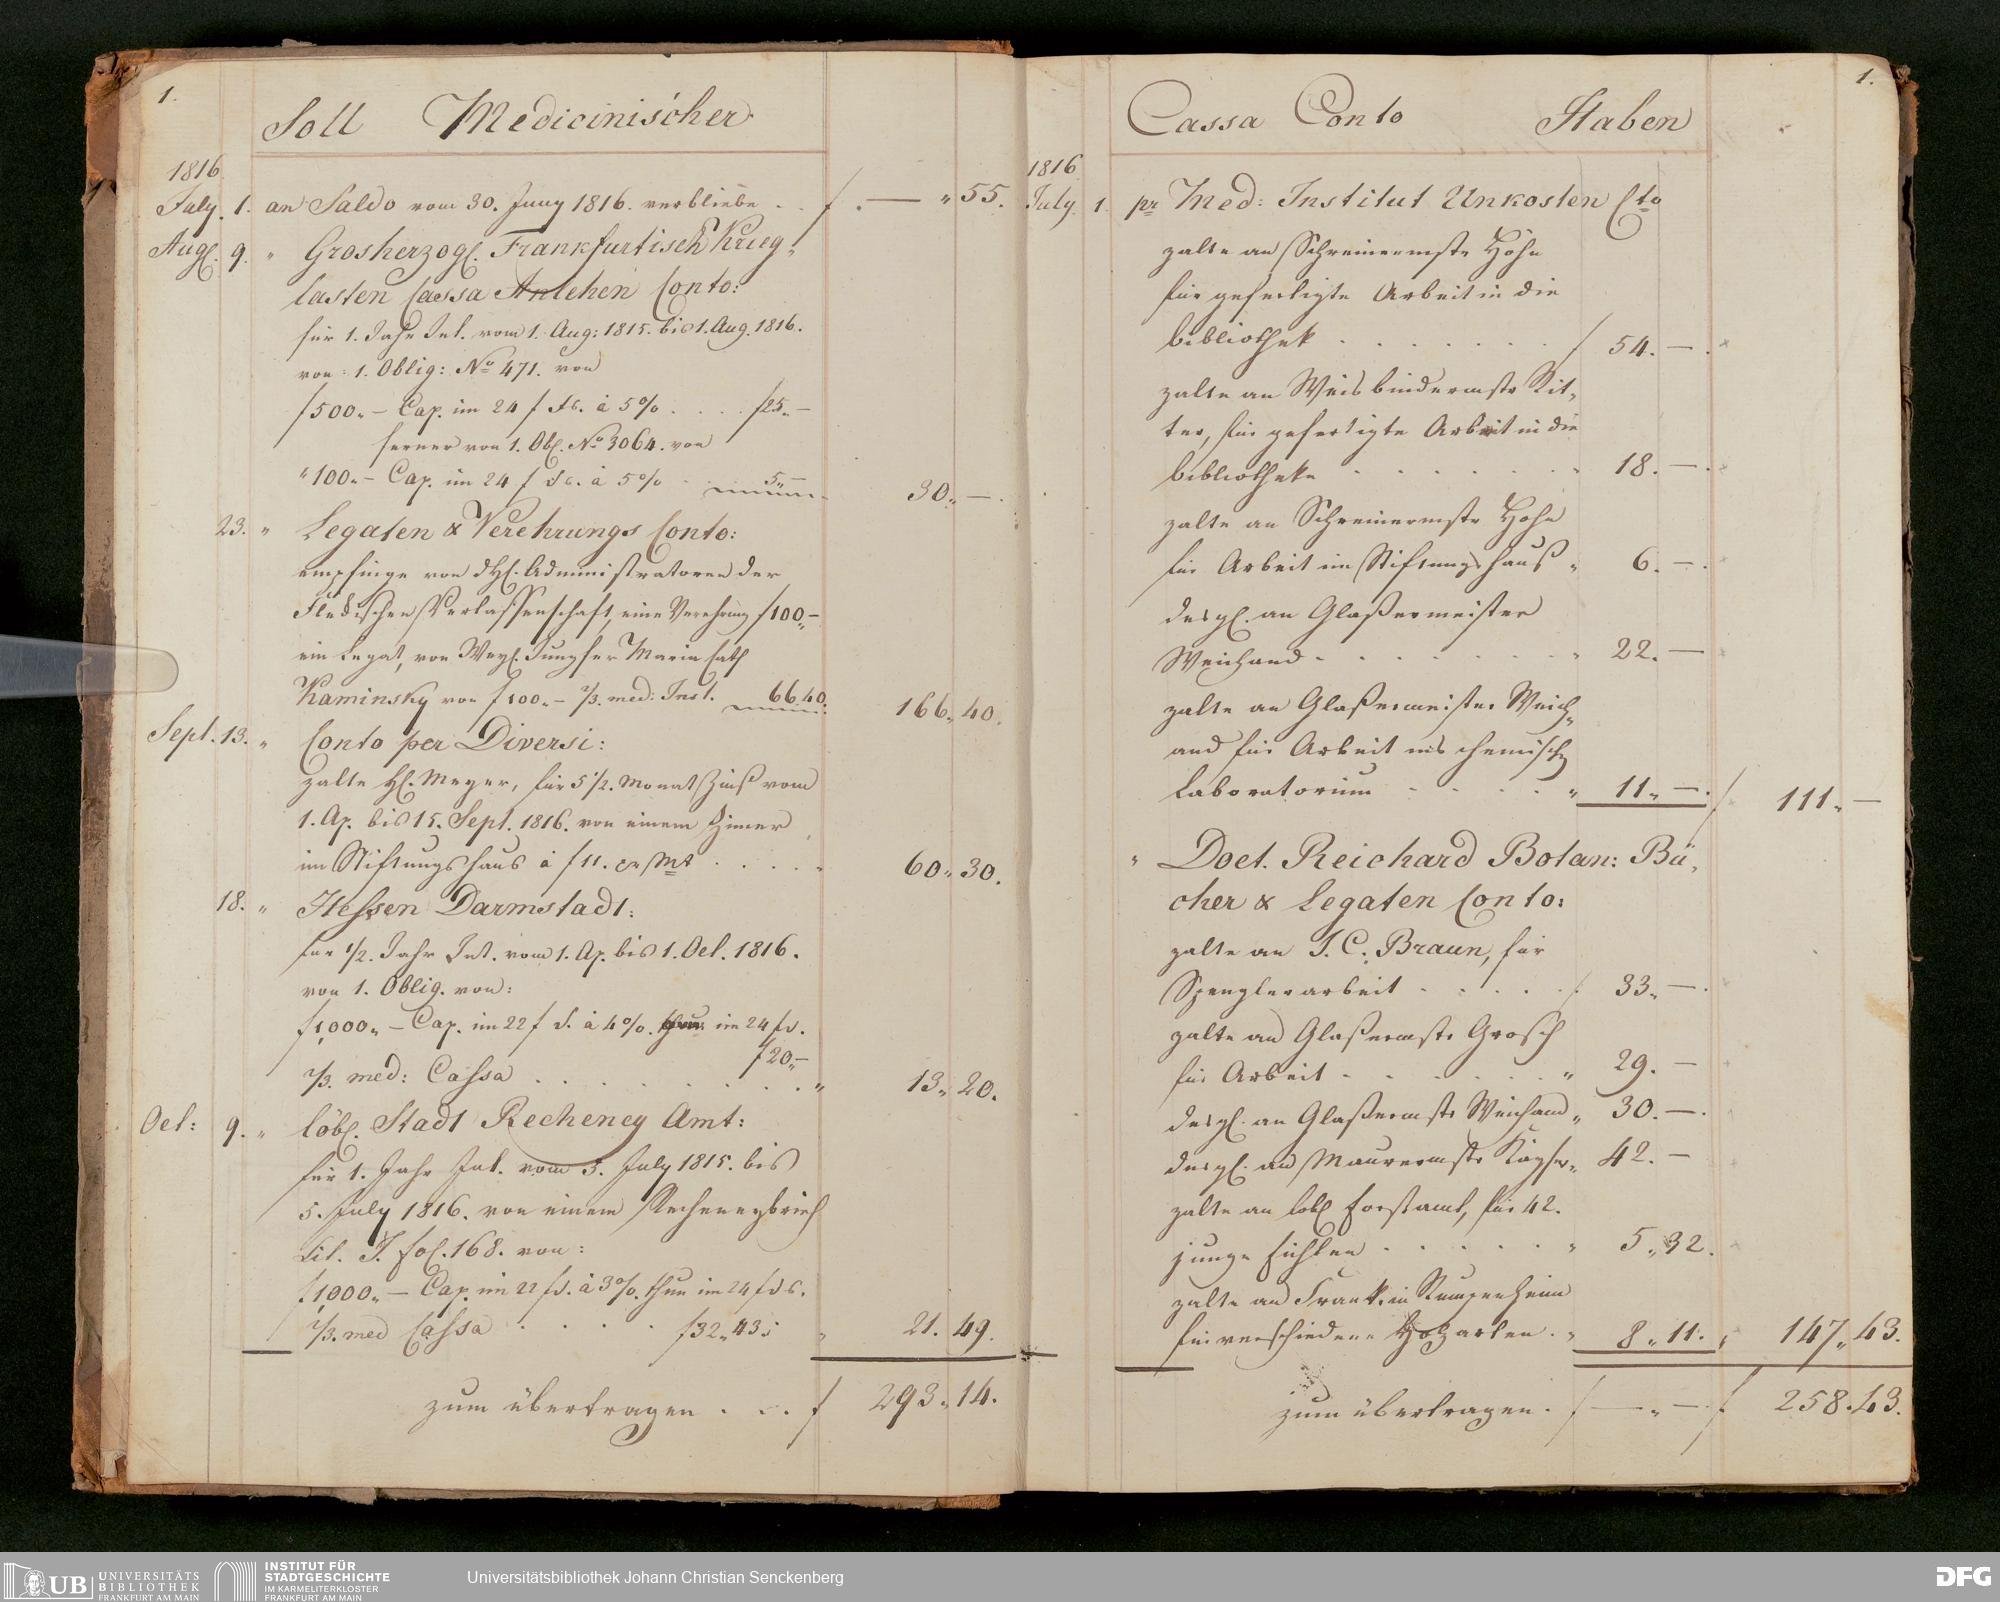 1.
Soll Medicinischer
1816
July. 1. an Saldo vom 30. Juny 1816. verbliebe . . f . — " 55.
Augl. 9. " Grosherzogl. Frankfurtisch Krieg-
lasten Cassa Anlehen Conto:
für 1. Jahr Int. vom 1. Aug: 1815. bis 1. Aug. 1816.
von 1. Oblig: No 471. von
f 500. – Cap. im 24 f ds. à 5% . . . . f 25. –
ferner von 1. Obl. No 3064. von
" 100. – Cap. im 24 f ds. à 5% . 5. – 30. –.
23. " Legaten & Verehrungs Conto:
empfinge von dHl. Administratoren der
Verlassenschaft, eine Verehrung f 100. –
ein Legat, von Weyl. Jungfer Maria Cath
Kaminsky von f 100. – 2/3. med: Inst. 66.40. 166. 40.
Sept. 13. " Conto per Diversi:
zalte Hl. Meyer, für 5 1/2. Monat Zinß vom
1. Ap. bis 15. Sept. 1816. von einem Zimer
im Stiftungshaus à f 11. pr Mt . . . . " 60. 30.
18. " Hessen Darmstadt:
für 1/2. Jahr Int. vom 1. Ap. bis 1. Oct. 1816.
von 1. Oblig. von:
f 1,000. – Cap. im 22 f d. à 4%. im 24 fd.
f 20. –
2/3. med: Cassa . . . . . . . . " 13. 20.
Oct: 9. " löbl. Stadt Recheney Amt:
für 1. Jahr Int. vom 5. July 1815. bis
5. July 1816. von einem Recheneybrief
Lit. J. fol. 168. von:
f 1,000. – Cap. im 22 fd. à 3%. thun im 24 fds.
2/3. med Cassa . . . . f 32. 43. " 21. 49.
zum übertragen . . . f 293. 14.
1.
Cassa Conto Haben
1816
July 1. pr Med: Institut Unkosten Cto
zalte an Schreinermstr Höhn
für gefertigte Arbeit in die
bibliothek . . . . . . . f 54. –.
zalte an Weisbindermstr Rit-
ter, für gefertigte Arbeit in die
bibliotheke . . . . . . " 18. –.
zalte an Schreinermstr Hohn
für Arbeit im Stiftungshaus " 6. –.
desgl. an Glaßermeister
Weichand . . . . . . . " 22. –
zalte an Glaßermeister Weich-
and für Arbeit ins chemisch
Laboratorium . . . . " 11. –. f 111. –
" Doct. Reichard Botan: Bü-
cher & Legaten Conto:
zalte an J. C. Braun, für
Spenglerarbeit . . . . . f 33. –.
zalte an Glaßermstr Grosch
für Arbeit . . . . . . " 29. –
desgl. an Glaßermstr Weichand " 30. –.
desgl. an Maurermstr Kayser " 42. –
zalte an löbl Forstamt, für 42.
junge Fichten . . . . . " 5. 32.
zalte an Frank in Rumpenheim
für verschiedene Holzarten . " 8. 11. 147. 43.
zum übertragen . f — . – . f 258. 43.
UB UNIVERSITÄTS
BIBLIOTHEK
FRANKFURT AM MAIN
INSTITUT FÜR
STADTGESCHICHTE
IM KARMELITERKLOSTER
FRANKFURT AM MAIN
Universitätsbibliothek Johann Christian Senckenberg
DFG